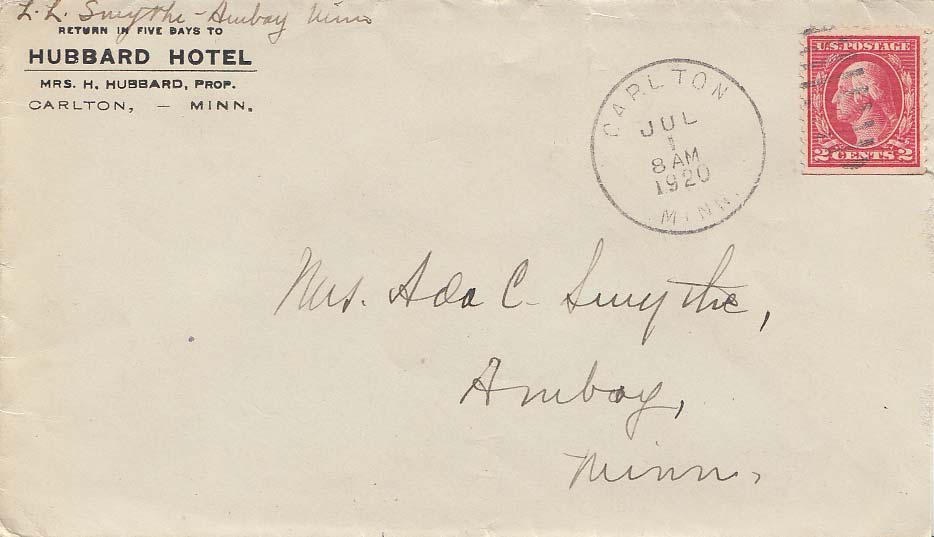 L. L. Smythe - Amboy Minn
RETURN IN FIVE DAYS TO
HUBBARD HOTEL
MRS. H. HUBBARD, PROP.
CARLTON, — MINN.
CARLTON
JUL
1
8 AM
1920
MINN.
U.S. POSTAGE
2 CENTS 2
Mrs. Ada C. Smythe,
Amboy,
Minn.